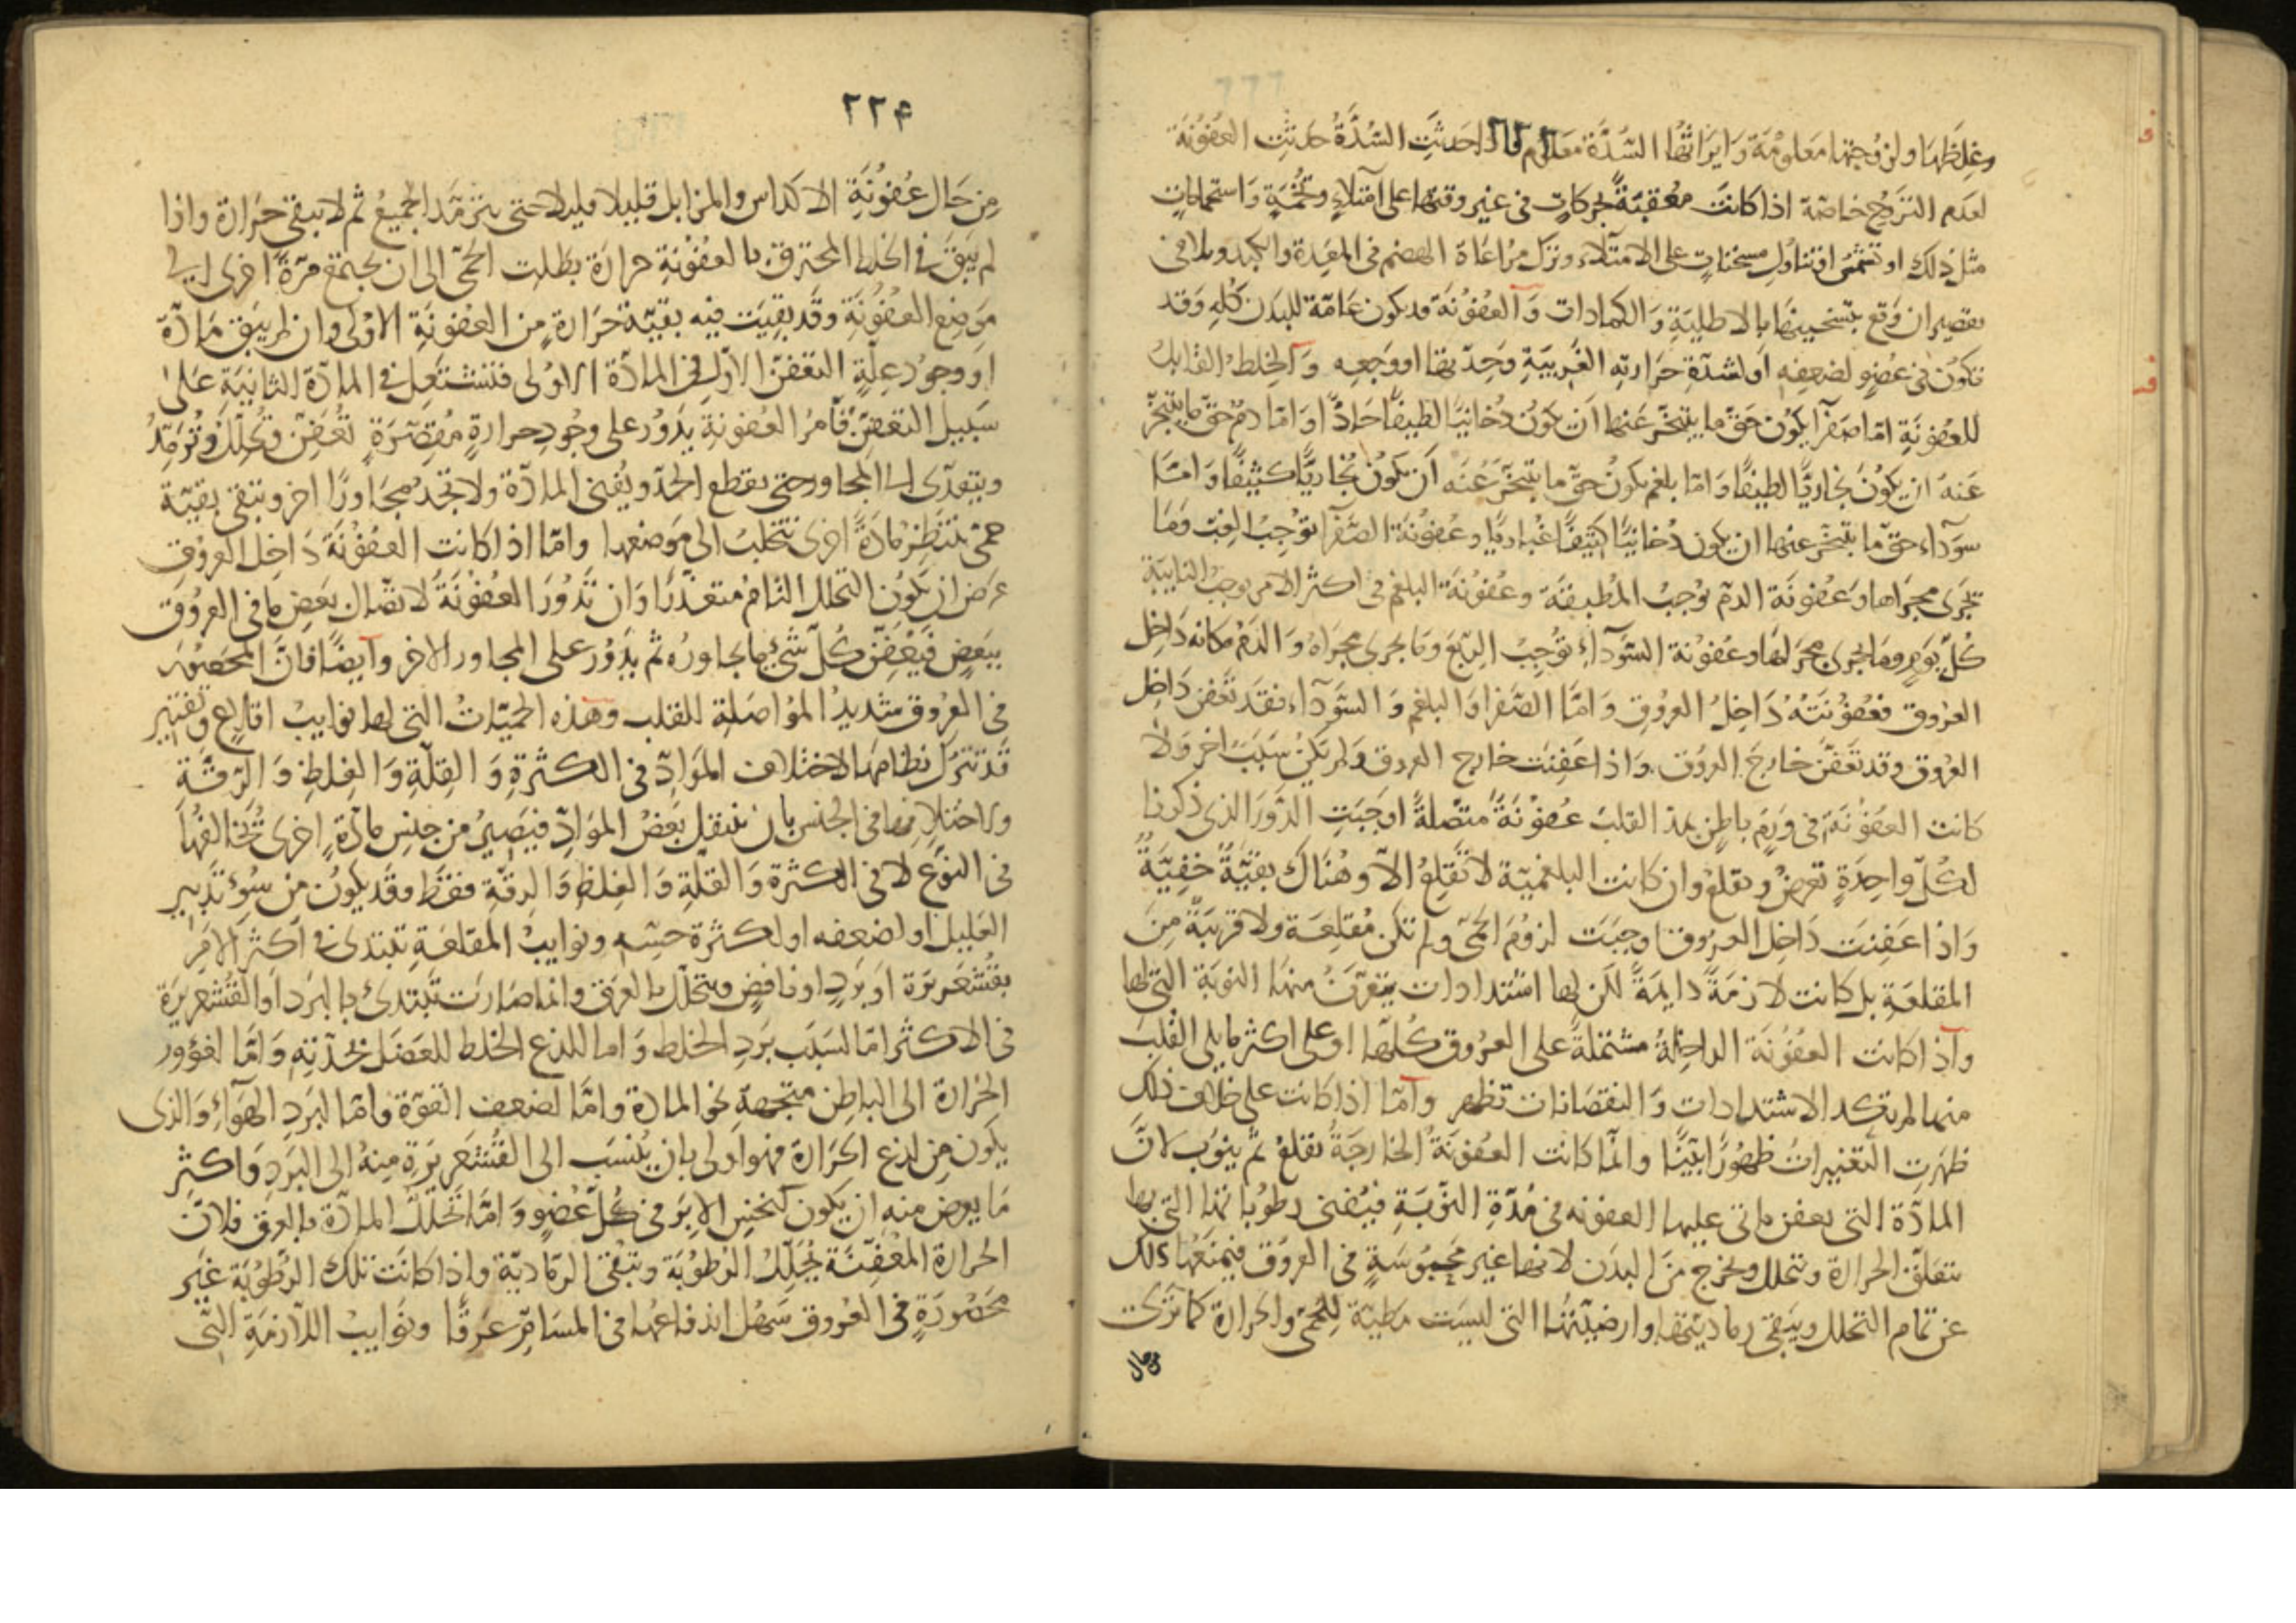 وغلظها ولزوجتها معلومة وايراثها السدة معلوم فاذا حدثت السدة حدثت العفونة
لعدم التروح خاصة اذا كانت معقبة لحركات في غير وقتها على امتلاء وتخمة واستحمامات
مثل ذلك او تشمس او تناول مسخنات على الامتلاء وترك مراعاة الهضم في المعدة والكبد وتلافى
تقصير ان وقع بتسخينها بالاطلية والكمادات والعفونة قد يكون عامة للبدن كله وقد
تكون في عضو لضعفه او لشدة حرارته الغريبة وحدتها او وجعه والخلط القابل
للعفونة اما صفرا يكون حق ما يتبخر عنها ان يكون دخانيا لطيفا حادا واما دم حق ما يتبخر
عنه ان يكون بخاريا لطيفا واما بلغم يكون حق ما يتبخر عنه ان يكون بخاريا كثيفا واما
سوداء حق ما يتبخر عنها ان يكون دخانيا كثيفا غباريا وعفونة الصفرا توجب الغب وما
تجرى مجراها وعفونة الدم توجب المطبقة وعفونة البلغم في اكثر الامر يوجب النايبة
كل يوم وما يجرى مجراها وعفونة السوداء توجب الربع وما يجرى مجراه والدم مكانه داخل
العروق فعفونته داخل العروق واما الصفرا والبلغم والسوداء فقد تعفن داخل
العروق وقد تعفن خارج العروق واذا عفنت خارج العروق ولم يكن سبب اخر ولا
كانت العفونة في ورم باطن يمد القلب عفونة متصلة اوجبت الدور الذى ذكرنا
لكل واحدة تعرض وتقلع وان كانت البلغمية لا تقلع الا وهناك بقية خفية
واذا عفنت داخل العروق اوجبت لزوم الحمى ولم تكن مقلعة ولا قريبة من
المقلعة بل كانت لازمة دايمة لكن لها اشتدادات يتعرف منها النوبة التى لها
واذا كانت العفونة الداخلة مشتملة على العروق كلها او على اكثر ما يلى القلب
منها لم تكد الاشتدادات والنقصانات تظهر واما اذا كانت على خلاف ذلك
ظهرت التغييرات ظهورا بينا وانما كانت العفونة الخارجة تقلع ثم ينوب لان
المادة التى تعفن ياتى عليها العفونه في مدة النوبة فيفنى رطوباتها التى بها
تتعلق الحرارة وتتحلل ويخرج من البدن لانها غير محبوسة في العروق فيمنعها ذلك
عن تمام التحلل ويبقى رماديتها وارضيتها التى ليست مطية للحمى والحرارة كما ترى
من حال
٢٢۴
من حال عفونة الاكداس والمزابل قليلا قليلا حتى يترمد الجميع ثم لا يبقى حرارة واذا
لم يبق في الخلط المحترق بالعفونة حرارة بطلت الحمى الى ان يجتمع مرة اخرى الى
موضع العفونة وقد بقيت فيه بقية حرارة من العفونة الاولى وان لم يبق مادة
او وجود علة التعفن الاول في المادة الاولى فتشتعل في المادة الثانية على
سبيل التعفن فامر العفونة يدور على وجود حرارة مقصرة تعفن وتحلل وترمد
ويتعدى الى المجاور حتى يقطع الحد ويفنى المادة ولا تجد مجاورا اخر وتبقى بقية
حمى تنتظر مادة اخرى تتحلب الى موضعها واما اذا كانت العفونة داخل العروق
عرض ان يكون التحلل التام متعذرا وان تدور العفونة لاتصال بعض ما في العروق
ببعض فيعفن كل شئ ما يجاوره ثم يدور على المجاور الاخر وايضا فان المحصور
في العروق شديد المواصلة للقلب وهذه الحميات التى لها نوايب اقلاع وتفتير
قد تترك نظامها لاختلاف المواد في الكثرة والقلة والغلظ والرقة
ولاختلافها في الجنس بان ينتقل بعض المواد فيصير من جنس مادة اخرى تخالفها
في النوع لا في الكثرة والقلة والغلظ والرقة فقط وقد يكون من سوء تدبير
العليل او لضعفه او لكثرة حسه ونوايب المقلعة تبتدى في اكثر الامر
بقشعريرة او برد او نافض ويتحلل بالعرق وانما صارت تبتدئ بالبرد او القشعريرة
في الاكثر اما لسبب برد الخلط واما للذع الخلط للعضل بحدته واما لغؤور
الحرارة الى الباطن متجهة نحو المادة واما لضعف القوة واما لبرد الهواء والذى
يكون من لذع الحرارة فهو اولى بان ينسب الى القشعريرة منه الى البرد واكثر
ما يعرض منه ان يكون كنخس الابر في كل عضو واما تحلل المادة بالعرق فلان
الحرارة المعفنة يحلل الرطوبة وتبقى الرمادية واذا كانت تلك الرطوبة غير
محصورة في العروق سهل اندفاعها في المسام عرقا ونوايب اللازمة التى